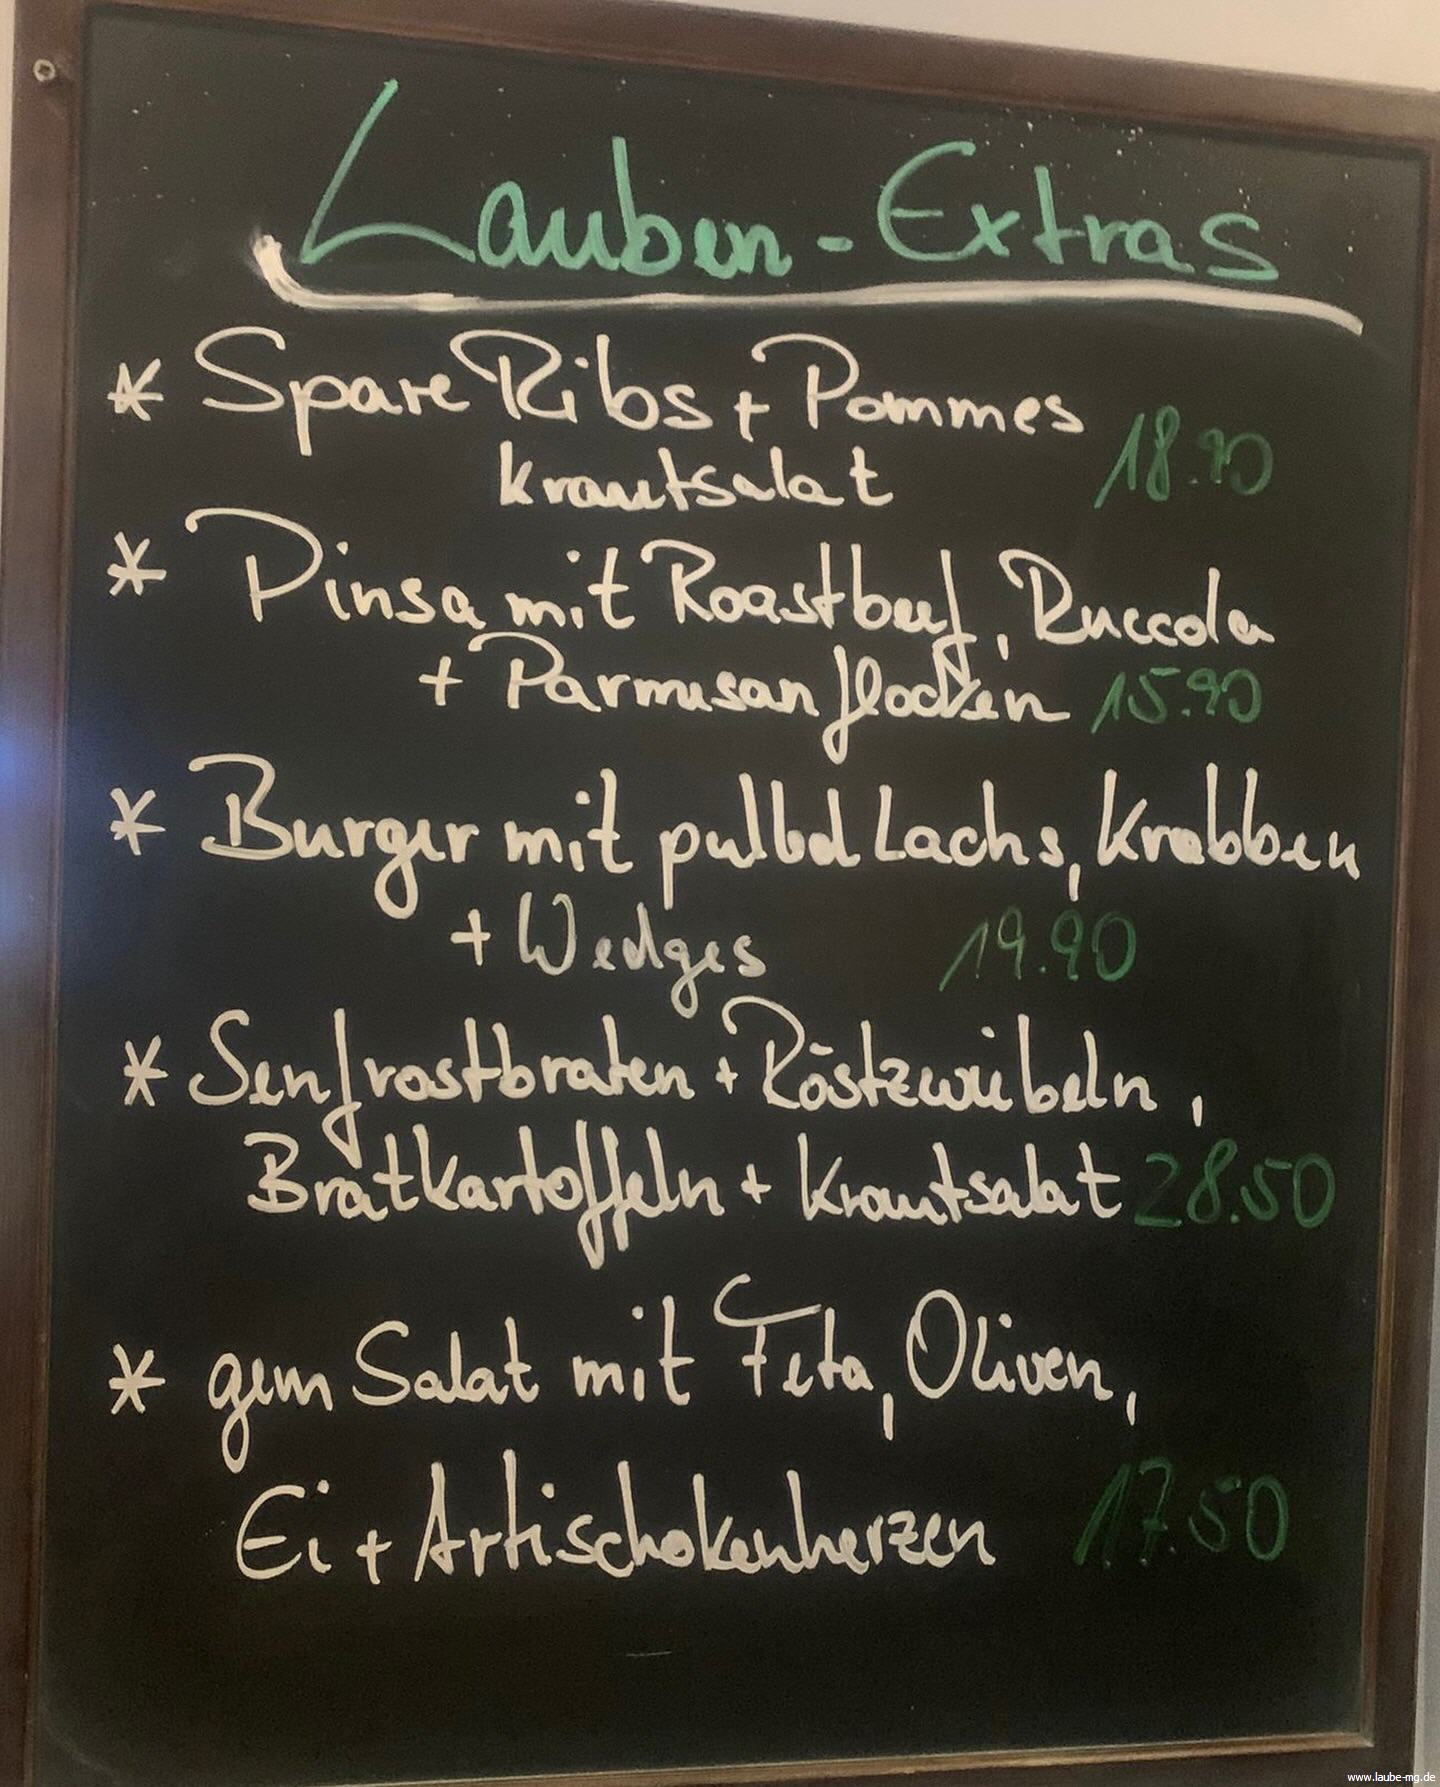 Lauben-Extras
* Spare Ribs + Pommes
Krautsalat 18.90
* Pinsa mit Roastbeef, Ruccola
+ Parmesanflocken 15.90
* Burger mit pulled Lachs, Krabben
+ Wedges 19.90
* Senfrostbraten + Röstzwiebeln,
Bratkartoffeln + Krautsalat 28.50
* gem Salat mit Feta, Oliven,
Ei + Artischokenherzen 17.50
www.laube-mg.de